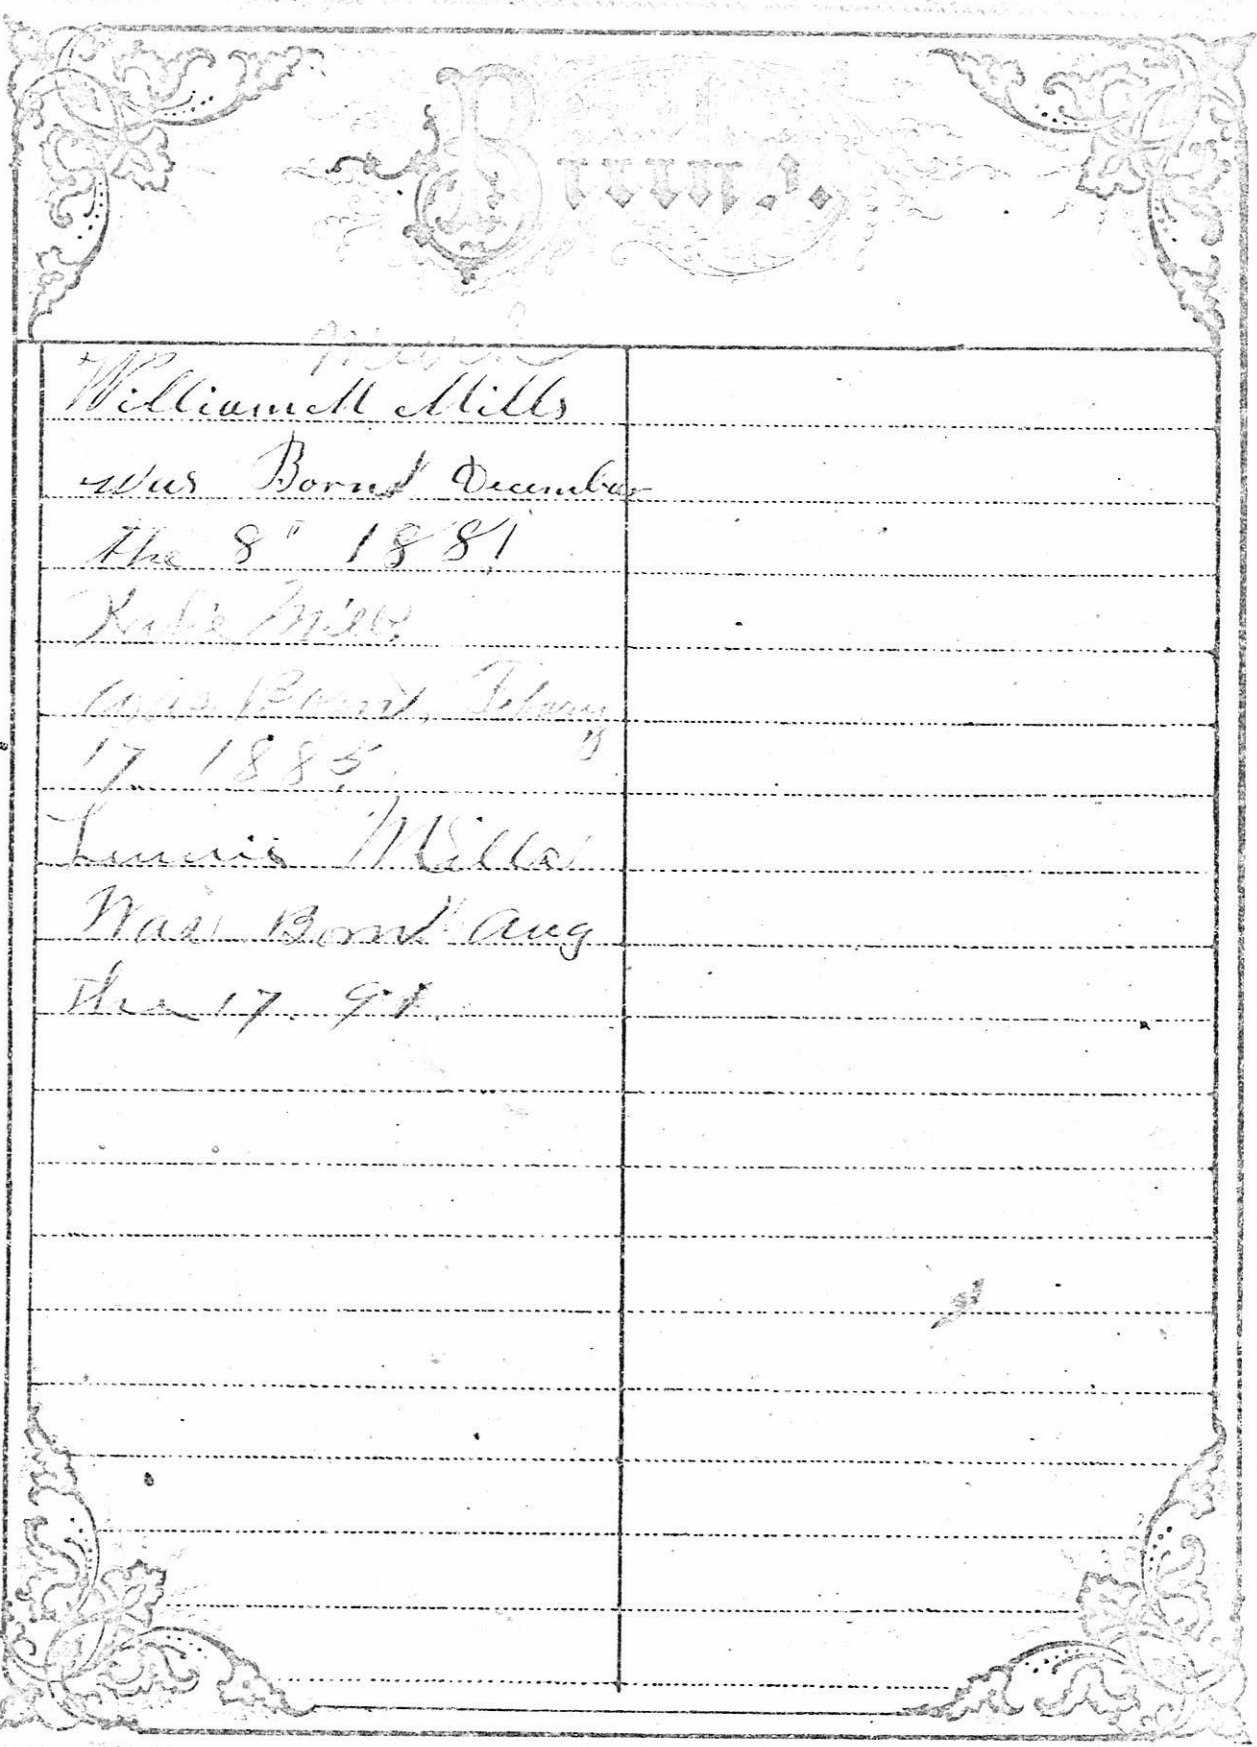 Births.
William M Mills
was Bornd December
the 8" 1881
Mills
was Bornd, Febury
17 1885
Mills
Was Bornd Aug
the 17. 91.